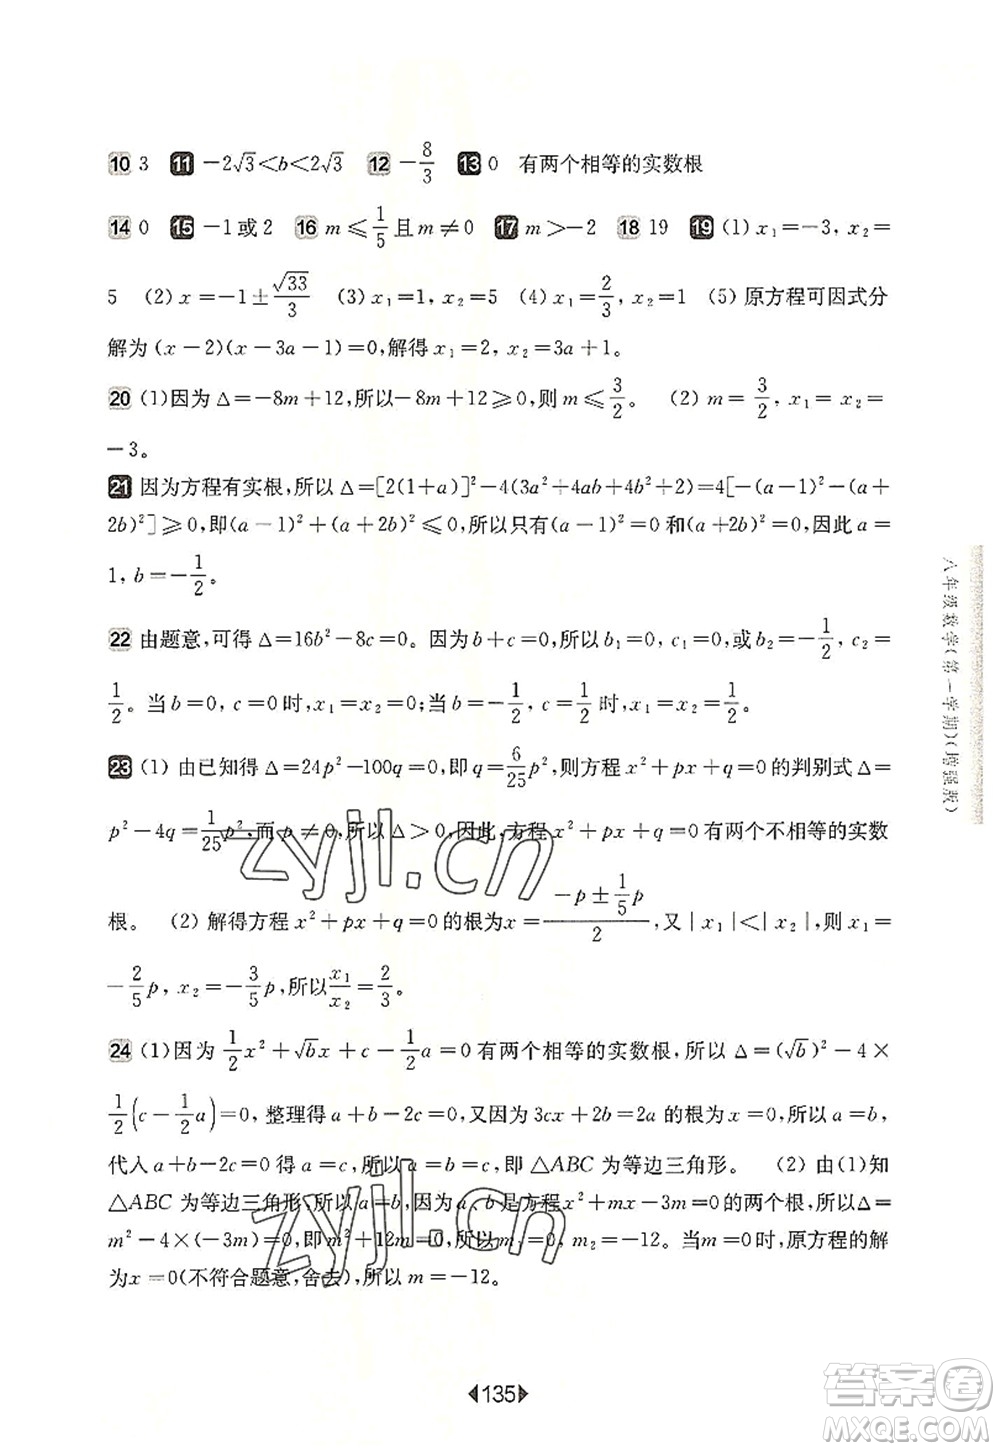 10 3 11 －2√3＜b＜2√3 12 －8/3 13 0 有两个相等的实数根
14 0 15 －1或2 16 m≤1/5且m≠0 17 m＞－2 18 19 19 (1) x₁＝－3, x₂＝
5 (2) x＝－1±√33/3 (3) x₁＝1, x₂＝5 (4) x₁＝2/3, x₂＝1 (5) 原方程可因式分
解为(x－2)(x－3a－1)＝0,解得x₁＝2, x₂＝3a＋1。
20 (1)因为Δ＝－8m＋12,所以－8m＋12≥0,则m≤3/2。 (2) m＝3/2, x₁＝x₂＝
－3。
21 因为方程有实根,所以Δ＝[2(1＋a)]²－4(3a²＋4ab＋4b²＋2)＝4[－(a－1)²－(a＋
2b)²]≥0,即(a－1)²＋(a＋2b)²≤0,所以只有(a－1)²＝0和(a＋2b)²＝0,因此a＝
1, b＝－1/2。
22 由题意,可得Δ＝16b²－8c＝0。因为b＋c＝0,所以b₁＝0, c₁＝0;或b₂＝－1/2, c₂＝
1/2。当b＝0, c＝0时, x₁＝x₂＝0;当b＝－1/2, c＝1/2时, x₁＝x₂＝1。
23 (1) 由已知得Δ＝24p²－100q＝0,即q＝6/25p²,则方程x²＋px＋q＝0的判别式Δ＝
p²－4q＝1/25p²,而p≠0,所以Δ＞0,因此,方程x²＋px＋q＝0有两个不相等的实数
根。 (2) 解得方程x²＋px＋q＝0的根为x＝(－p±1/5p)/2,又|x₁|＜|x₂|,所以x₁＝
－2/5p, x₂＝－3/5p,所以x₁/x₂＝2/3。
24 (1)因为1/2x²＋√bx＋c－1/2a＝0有两个相等的实数根,所以Δ＝(√b)²－4×
1/2(c－1/2a)＝0,整理得a＋b－2c＝0,又因为3cx＋2b＝2a的根为x＝0,所以a＝b,
代入a＋b－2c＝0得a＝c,所以a＝b＝c,即△ABC为等边三角形。 (2) 由(1)知
△ABC为等边三角形,所以a＝b,因为a、b是方程x²＋mx－3m＝0的两个根,所以Δ＝
m²－4×(－3m)＝0,即m²＋12m＝0,所以m₁＝0, m₂＝－12。当m＝0时,原方程的解
为x＝0(不符合题意,舍去),所以m＝－12。
八年级数学(第一学期)(增强版)
135
zyjl.cn
zyjl.cn
答案圈
MXQE.COM